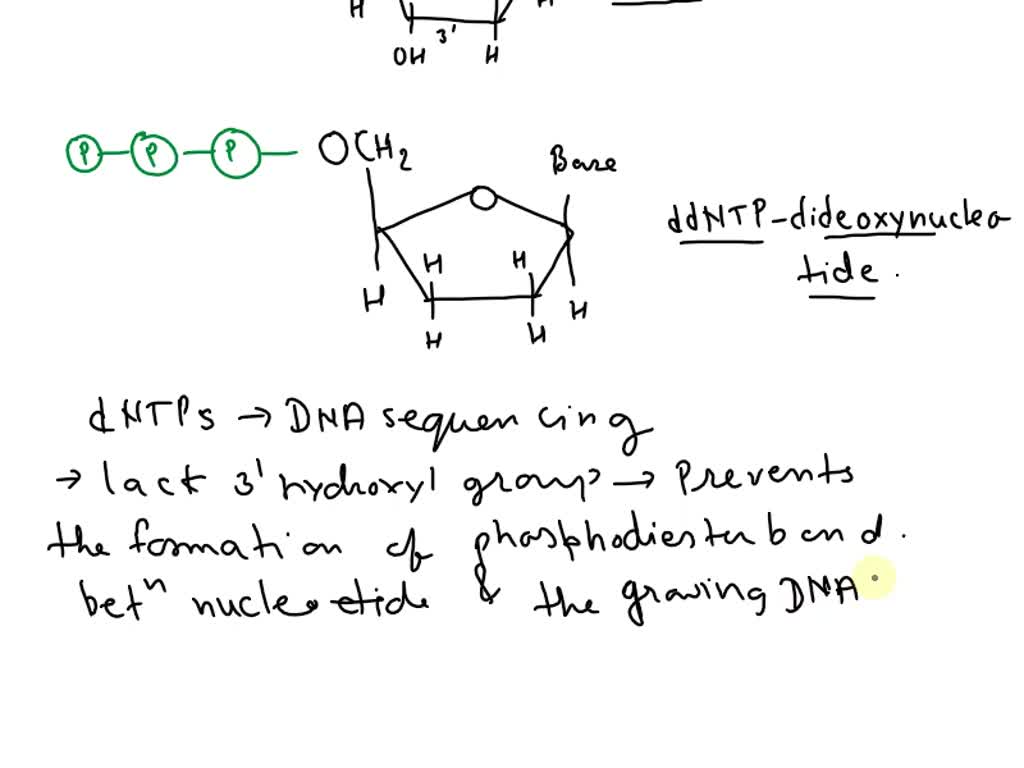 H H
3'
OH H
P P P OCH2 Base
O
ddNTP-dideoxynucleo
tide.
H H
H H
H H
dNTPs → DNA sequencing
→ lack 3' hydroxyl group → Prevents
the formation of phosphodiester bond.
betn nucleotide & the growing DNA